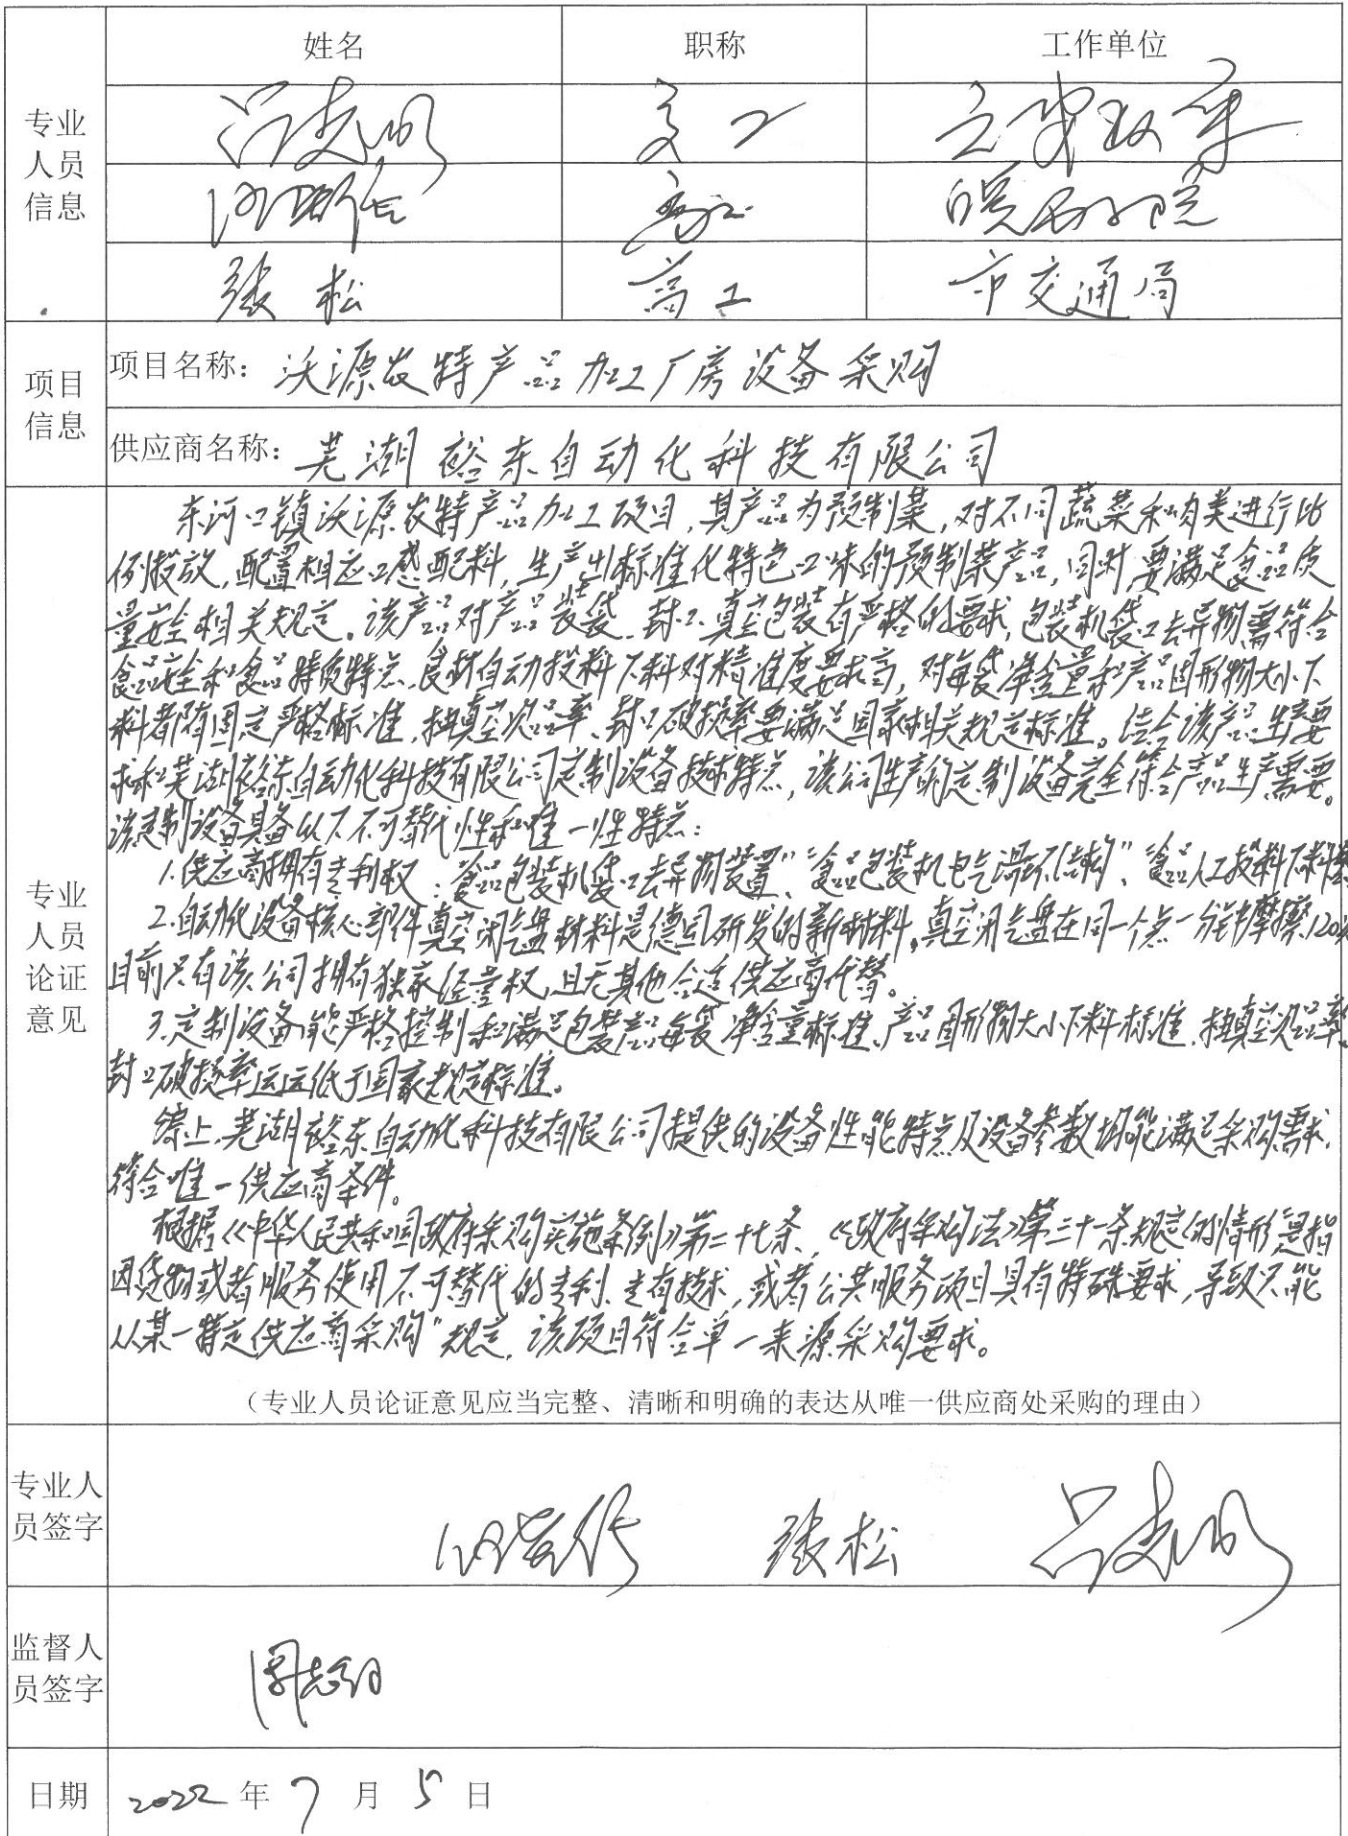 姓名 职称 工作单位
专业
人员
信息
高工
张松 高工 市交通局
项目
信息
项目名称：沃源农特产品加工厂房设备采购
供应商名称：芜湖裕东自动化科技有限公司
专业
人员
论证
意见
东河口镇沃源农特产品加工项目，其产品为预制菜，对不同蔬菜和肉类进行比
例投放，配置相应口感配料，生产出标准化特色口味的预制菜产品，同时，要满足食品质
量安全相关规定。该产品对产品装袋、封口、真空包装有严格的要求，包装机袋口去异物需符合
食品安全和食品特质特点，食材自动投料下料对精准度要求高，对每袋净含量和产品固形物大小下
料都有固定严格标准，抽真空次品率、封口破损率要满足国家相关规定标准。结合该产品生产要
求和芜湖裕东自动化科技有限公司定制设备技术特点，该公司生产的定制设备完全符合产品生产需要。
该定制设备具备以下不可替代性和唯一性特点：
1.供应商拥有专利权："食品包装机袋口去异物装置"、"食品包装机电气滑环结构"、"食品人工投料下料
2.自动化设备核心部件真空闭气盘材料是德国研发的新材料，真空闭气盘在同一个点一分钟摩擦120次
目前只有该公司拥有独家经营权，且无其他合适供应商代替。
3.定制设备能严格控制和满足包装产品每袋净含量标准、产品固形物大小下料标准，抽真空次品率、
封口破损率远远低于国家规定标准。
综上，芜湖裕东自动化科技有限公司提供的设备性能特点及设备参数均能满足采购需求，
符合唯一供应商条件。
根据《中华人民共和国政府采购实施条例》第二十七条、《政府采购法》第三十一条规定的情形是指
因货物或者服务使用不可替代的专利、专有技术，或者公共服务项目具有特殊要求，导致只能
从某一特定供应商采购"规定，该项目符合单一来源采购要求。
（专业人员论证意见应当完整、清晰和明确的表达从唯一供应商处采购的理由）
专业人
员签字
张松
监督人
员签字
日期 2022年7月5日